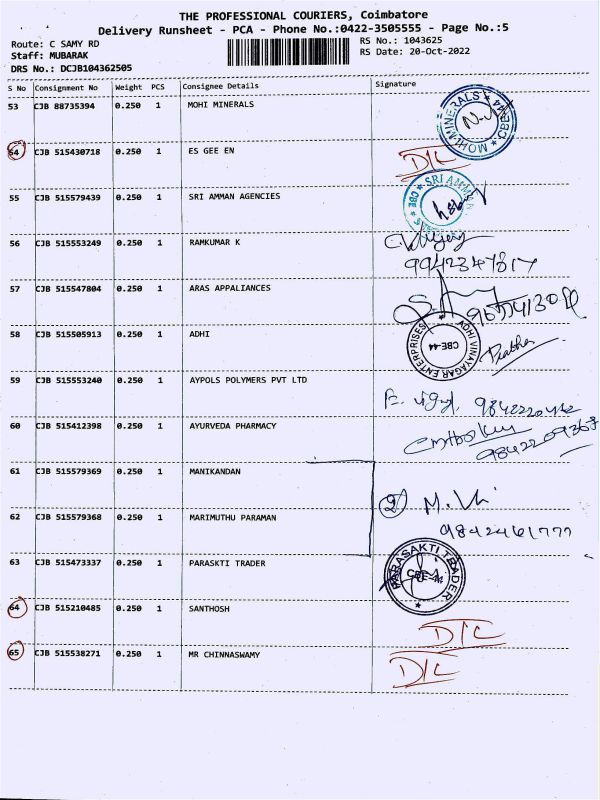 THE PROFESSIONAL COURIERS, Coimbatore
Delivery Runsheet - PCA - Phone No.:0422-3505555 - Page No.:5
Route: C SAMY RD
RS No.: 1043625
Staff: MUBARAK
RS Date: 20-Oct-2022
DRS No.: DCJB104362505
S No Consignment No Weight PCS Consignee Details Signature
53 CJB 88735394 0.250 1 MOHI MINERALS
MOHI MINERALS CBE-44
54 CJB 515430718 0.250 1 ES GEE EN
DTC
55 CJB 515579439 0.250 1 SRI AMMAN AGENCIES
SRI AMMAN CBE
56 CJB 515553249 0.250 1 RAMKUMAR K
9942347817
57 CJB 515547804 0.250 1 ARAS APPALIANCES
58 CJB 515505913 0.250 1 ADHI
ADHI VINAYAGAR ENTERPRISES CBE-44
Prabha
59 CJB 515553240 0.250 1 AYPOLS POLYMERS PVT LTD
60 CJB 515412398 0.250 1 AYURVEDA PHARMACY
9842209363
61 CJB 515579369 0.250 1 MANIKANDAN
2 M.
62 CJB 515579368 0.250 1 MARIMUTHU PARAMAN
9842461777
63 CJB 515473337 0.250 1 PARASKTI TRADER
PARASAKTI TRADER
64 CJB 515210485 0.250 1 SANTHOSH
DTC
65 CJB 515538271 0.250 1 MR CHINNASWAMY
DTC